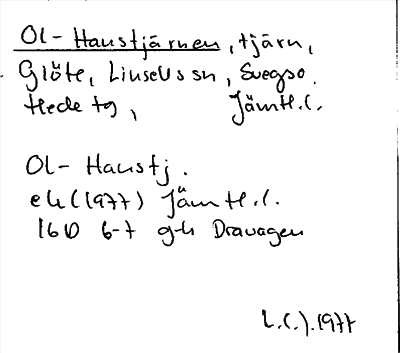 Ol-Haustjärnen, tjärn,
Glöte, Linsells sn, Svegs o.
Hede tg, Jämtl. l.
Ol-Haustj.
ek (1977) Jämtl. l.
16D 6-7 g-h Dravagen
L.L.).1977